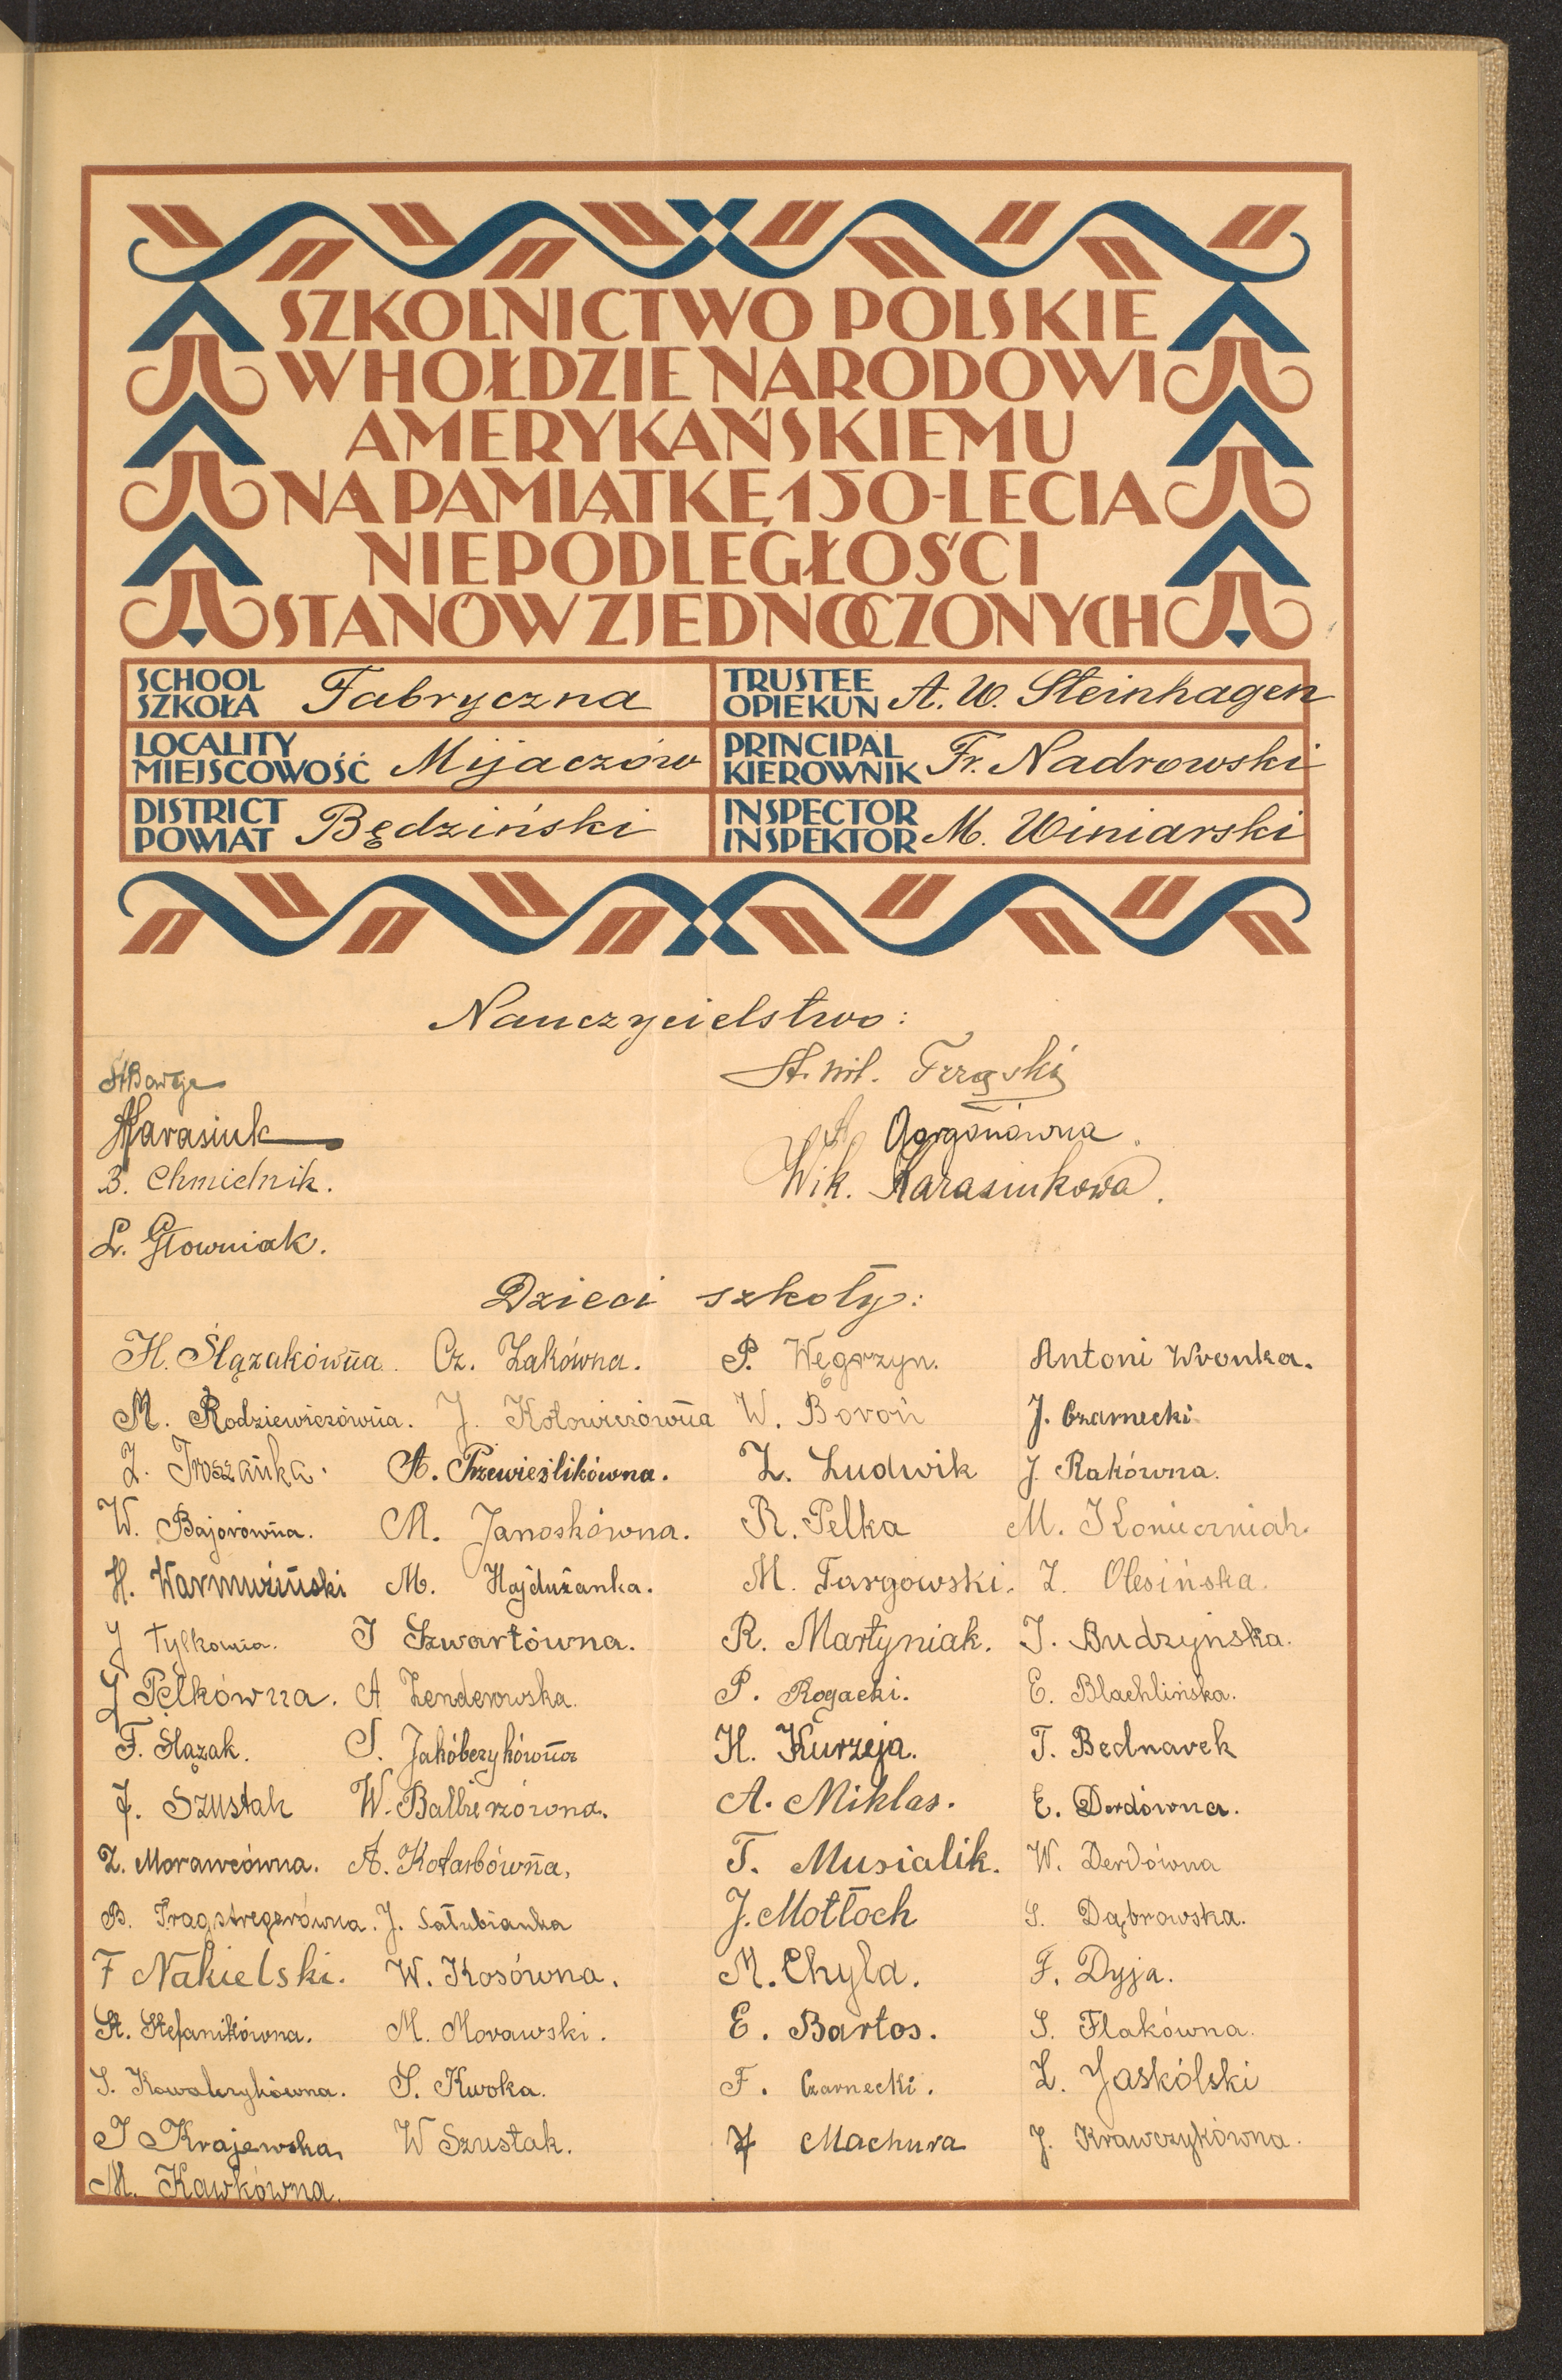 SZKOLNICTWO POLSKIE
W HOŁDZIE NARODOWI
AMERYKAŃSKIEMU
NA PAMIĄTKĘ 150-LECIA
NIEPODLEGŁOŚCI
STANÓW ZJEDNOCZONYCH
SCHOOL
SZKOŁA Fabryczna
TRUSTEE
OPIEKUN A. W. Steinhagen
LOCALITY
MIEJSCOWOŚĆ Mijaczów
PRINCIPAL
KIEROWNIK Fr. Nadrowski
DISTRICT
POWIAT Będziński
INSPECTOR
INSPEKTOR M. Winiarski
Nauczycielstwo:
St. Wil. Trząski
Karasiuk
B. Chmielnik.
Wik. Karasiukowa.
L. Głowniak.
Dzieci szkoły:
H. Ślązakówna. Cz. Żakówna. P. Węgrzyn. Antoni Wronka.
M. Rodziewiczówna. J. Kołowiczówna W. Boroń J. Czarnecki
Z. Troszańka. A. Przewieślikówna. Z. Ludwik J. Rakówna.
W. Bajorówna. M. Janoskówna. R. Pelka M. Konieczniak.
H. Warmuziński M. Hajdużanka. M. Targowski. Z. Olesińska.
J Tylkowna. I Szwartówna. R. Martyniak. I. Budzyńska.
J Pelkówna. A Zenderowska. P. Rogacki. E. Blachlińska.
F. Ślązak. S. Jakóbczykówna H. Kurzeja. T. Bednarek
J. Szustak W. Balbierzówna. A. Miklas. E. Derdówna.
Z. Morawcówna. A. Kotarbówna, T. Musialik. W. Derdówna
B. J. Sałubianka J. Motłoch S. Dąbrowska.
F Nakielski. W. Kosówna. M. Chyla. F. Dyja.
St. Stefanikówna. M. Morawski. E. Bartos. S. Flakówna.
S. Kowalczykówna. S. Kwoka. F. Czarnecki. Z. Jaskólski
I Krajewska. W Szustak. J Machura J. Krawczykówna.
M. Kawkówna.